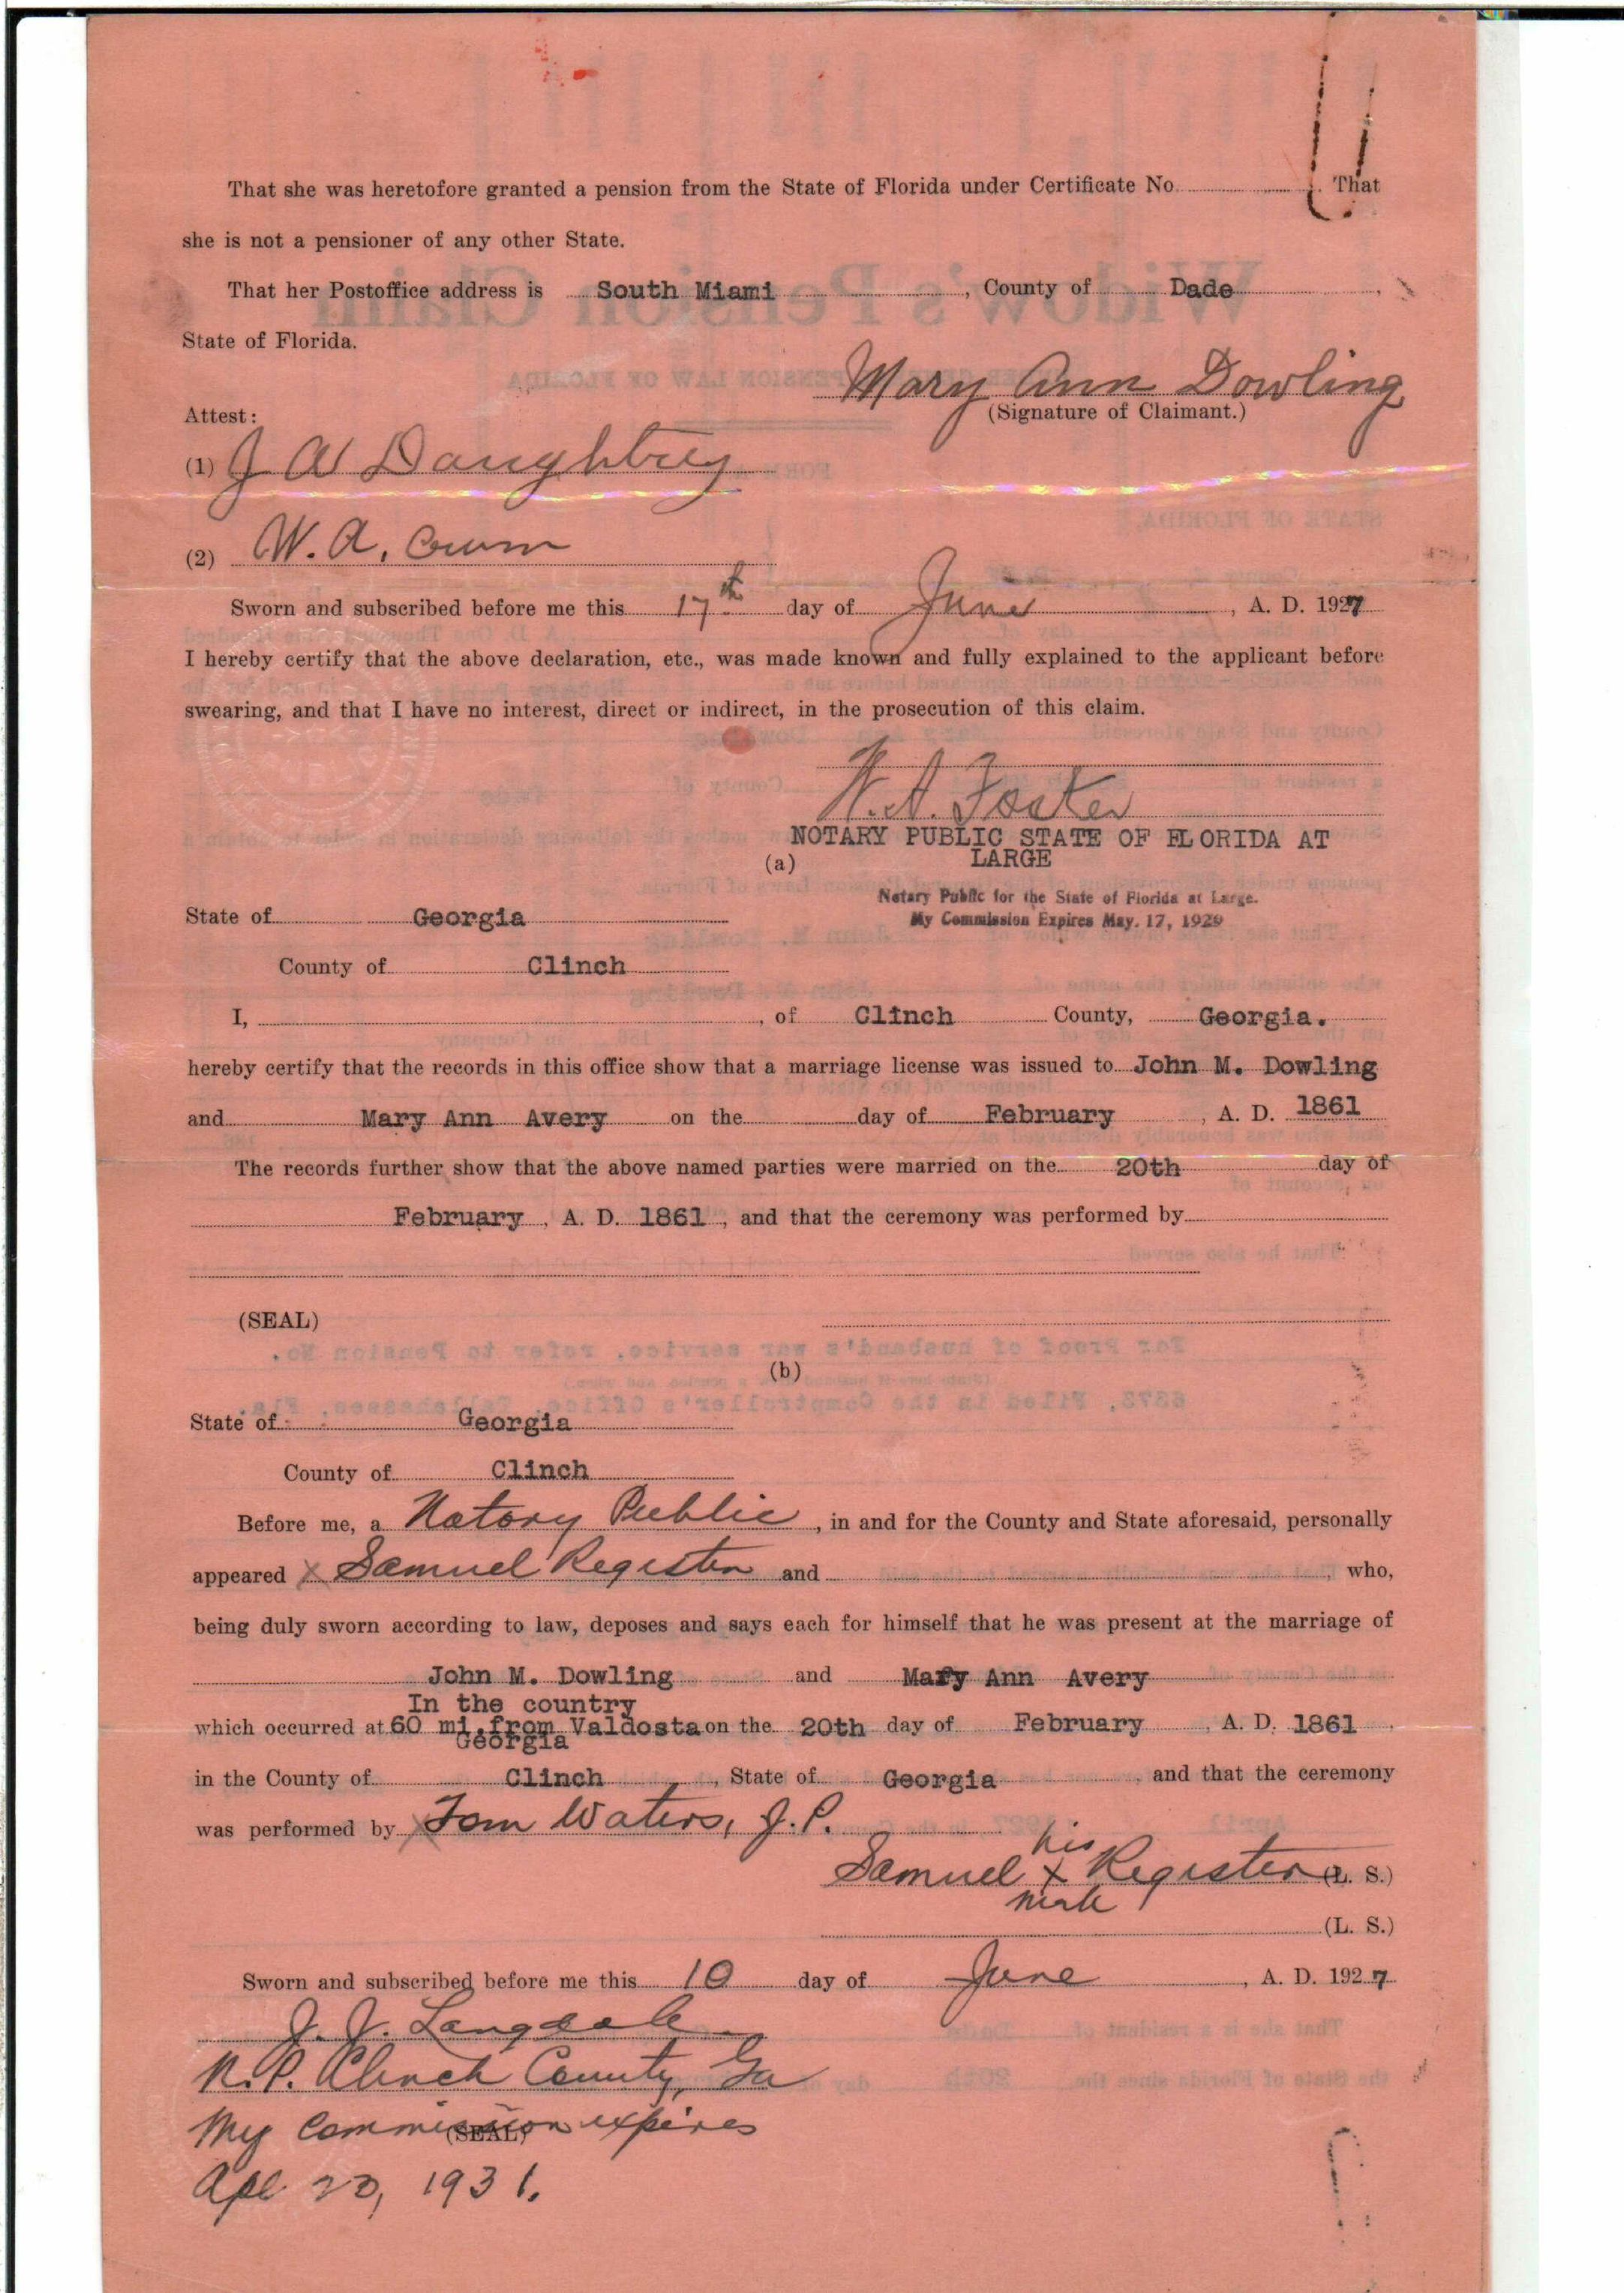 That she was heretofore granted a pension from the State of Florida under Certificate No. That
she is not a pensioner of any other State.
That her Postoffice address is South Miami, County of Dade,
State of Florida.
Mary Ann Dowling
Attest: (Signature of Claimant.)
(1) J A Daughtrey
(2) W. A.
Sworn and subscribed before me this 17th day of June, A. D. 1927
I hereby certify that the above declaration, etc., was made known and fully explained to the applicant before
swearing, and that I have no interest, direct or indirect, in the prosecution of this claim.
Foster
NOTARY PUBLIC STATE OF FLORIDA AT
LARGE
(a)
Notary Public for the State of Florida at Large.
My Commission Expires May. 17, 1929
State of Georgia
County of Clinch
I, , of Clinch County, Georgia.
hereby certify that the records in this office show that a marriage license was issued to John M. Dowling
and Mary Ann Avery on the day of February, A. D. 1861
The records further show that the above named parties were married on the 20th day of
February, A. D. 1861, and that the ceremony was performed by
(SEAL)
(b)
State of Georgia
County of Clinch
Before me, a Notary Public, in and for the County and State aforesaid, personally
appeared x Samuel Register and , who,
being duly sworn according to law, deposes and says each for himself that he was present at the marriage of
John M. Dowling and Mary Ann Avery
In the country
which occurred at 60 mi. from Valdosta on the 20th day of February, A. D. 1861.
Georgia
in the County of Clinch, State of Georgia and that the ceremony
was performed by x Tom Waters, J.P.
his
Samuel x Register (L. S.)
mark
(L. S.)
Sworn and subscribed before me this 10 day of June, A. D. 1927
J. J. Langdale
N.P. Clinch County, Ga
My Commission expires
(SEAL)
Apl 20, 1931.